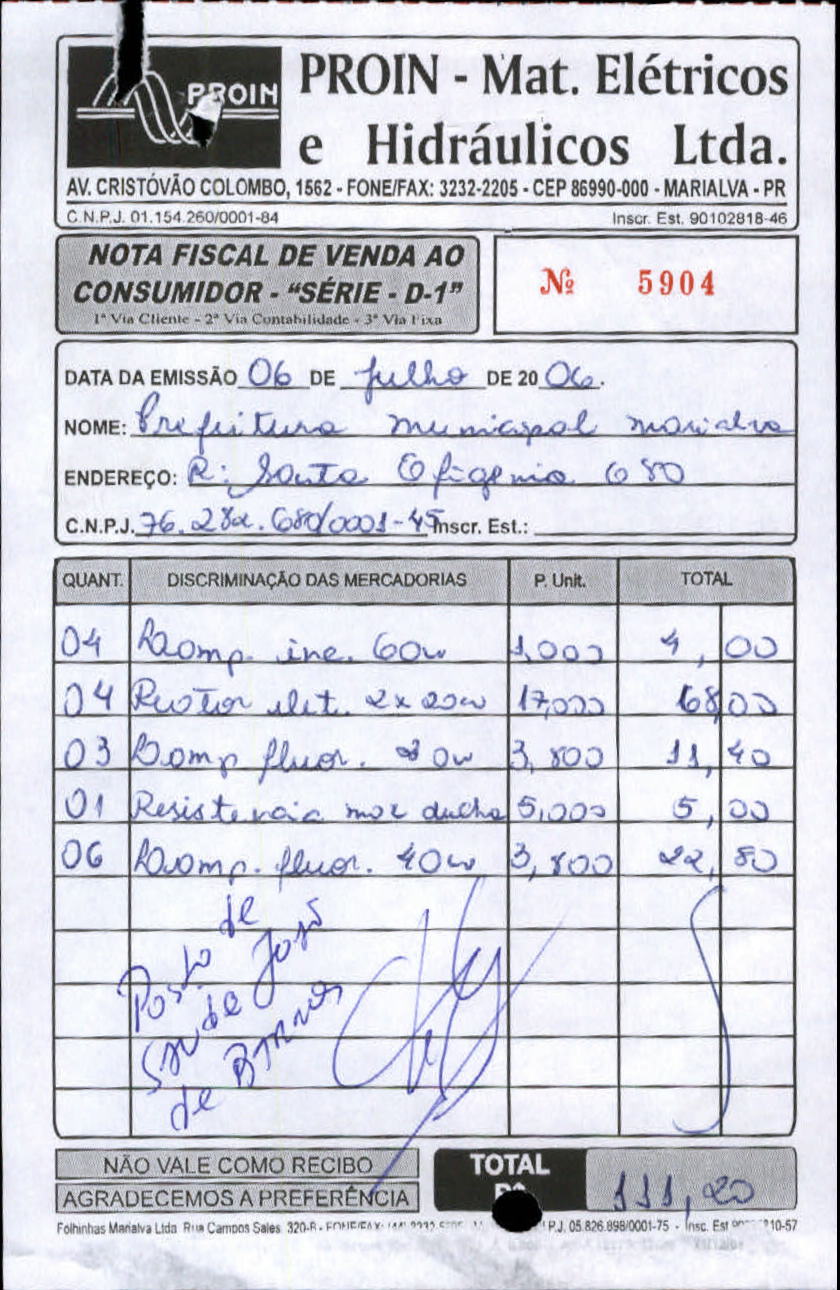 PROIN
PROIN - Mat. Elétricos
e Hidráulicos Ltda.
AV. CRISTÓVÃO COLOMBO, 1562 - FONE/FAX: 3232-2205 - CEP 86990-000 - MARIALVA - PR
C.N.P.J. 01.154.260/0001-84 Inscr. Est. 90102818-46
NOTA FISCAL DE VENDA AO
CONSUMIDOR - "SÉRIE - D-1"
1ª Via Cliente - 2ª Via Contabilidade - 3ª Via Fixa
Nº 5904
DATA DA EMISSÃO 06 DE julho DE 20 06.
NOME: Prefeitura municipal marialva
ENDEREÇO: R: Santa Efigenia 680
C.N.P.J. 76.282.680/0001-45 Inscr. Est.:
QUANT. DISCRIMINAÇÃO DAS MERCADORIAS P. Unit. TOTAL
04 Lamp. inc. 60w 1,000 4,00
04 Reator elet. 2x20w 17,000 68,00
03 Lamp. fluor. 20w 3,800 11,40
01 Resistencia max ducha 5,000 5,00
06 Lamp. fluor. 40w 3,800 22,80
Posto de
Saude José
de Barros
NÃO VALE COMO RECIBO
AGRADECEMOS A PREFERÊNCIA
TOTAL
R$ 111,20
Folhinhas Marialva Ltda Rua Campos Sales, 320-B - FONE/FAX: (44) 3232 P.J. 05.826.898/0001-75 - Insc. Est 10-57